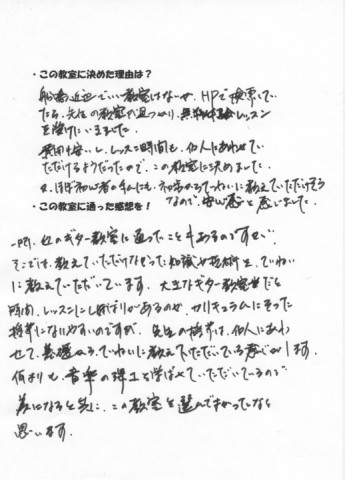 ・この教室に決めた理由は？
船橋近辺でいい教室はないか、HPで検索してい
たら、先生の教室が見つかり、無料体験レッスン
を受けにいきました。
費用も安いし、レッスン時間も、個人にあわせてい
ただけるようだったので、この教室に決めました。
又、ほぼ初心者の私にも、初歩からていねいに教えていただけそう
なので、安心感を感じました。
・この教室に通った感想を！
一時、他のギター教室に通ったこともあるのですが、
そこでは、教えていただけなかった知識や技術を、ていねい
に教えていただいています。大きなギター教室だと
時間、レッスンにしばりがあるのか、カリキュラムにそった
指導になりやすいのですが、先生の指導は、個人にあわ
せて、基礎から、ていねいに教えて下さっている感じがします。
何よりも、音楽の理論を学ばせていただいているので
為になると共に、この教室を選んでよかったなと
思います。